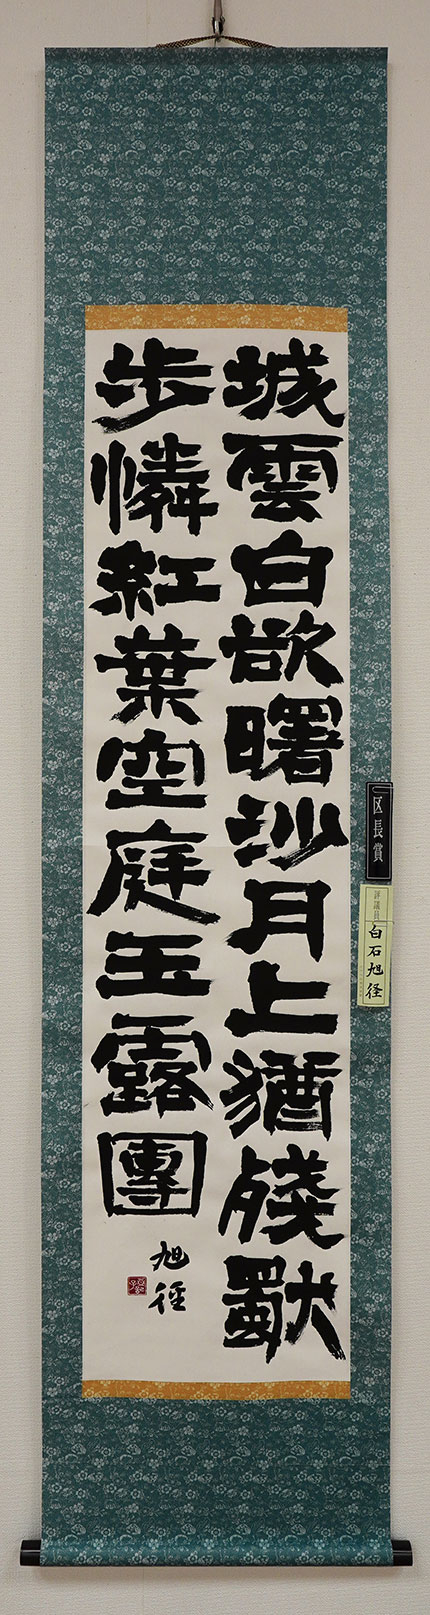 城雲白欲曙沙月上猶殘獨
步憐紅葉空庭玉露團
旭徑
区長賞
評議員
白石旭径